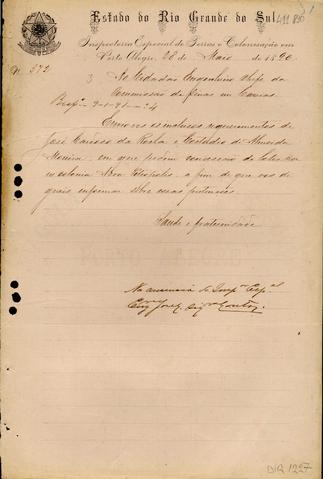 Estado do Rio Grande do Sul
Inspectoria Especial de Terras e Colonisação em
Porto Alegre, 28 de Maio de 1890
Nº 572
Ao Cidadão Engenheiro Chefe da
Commissão de Terras em Caxias
Envio-vos os inclusos requerimentos de
José Cardoso da Rocha e de Almeida
Moreira em que pedem concessão de lotes
na colonia Nova Petropolis, a fim de que vos
digneis informar sobre essas pretenções.
Saude e fraternidade
Na ausencia do Insp.or Esp.al
DIR 1227